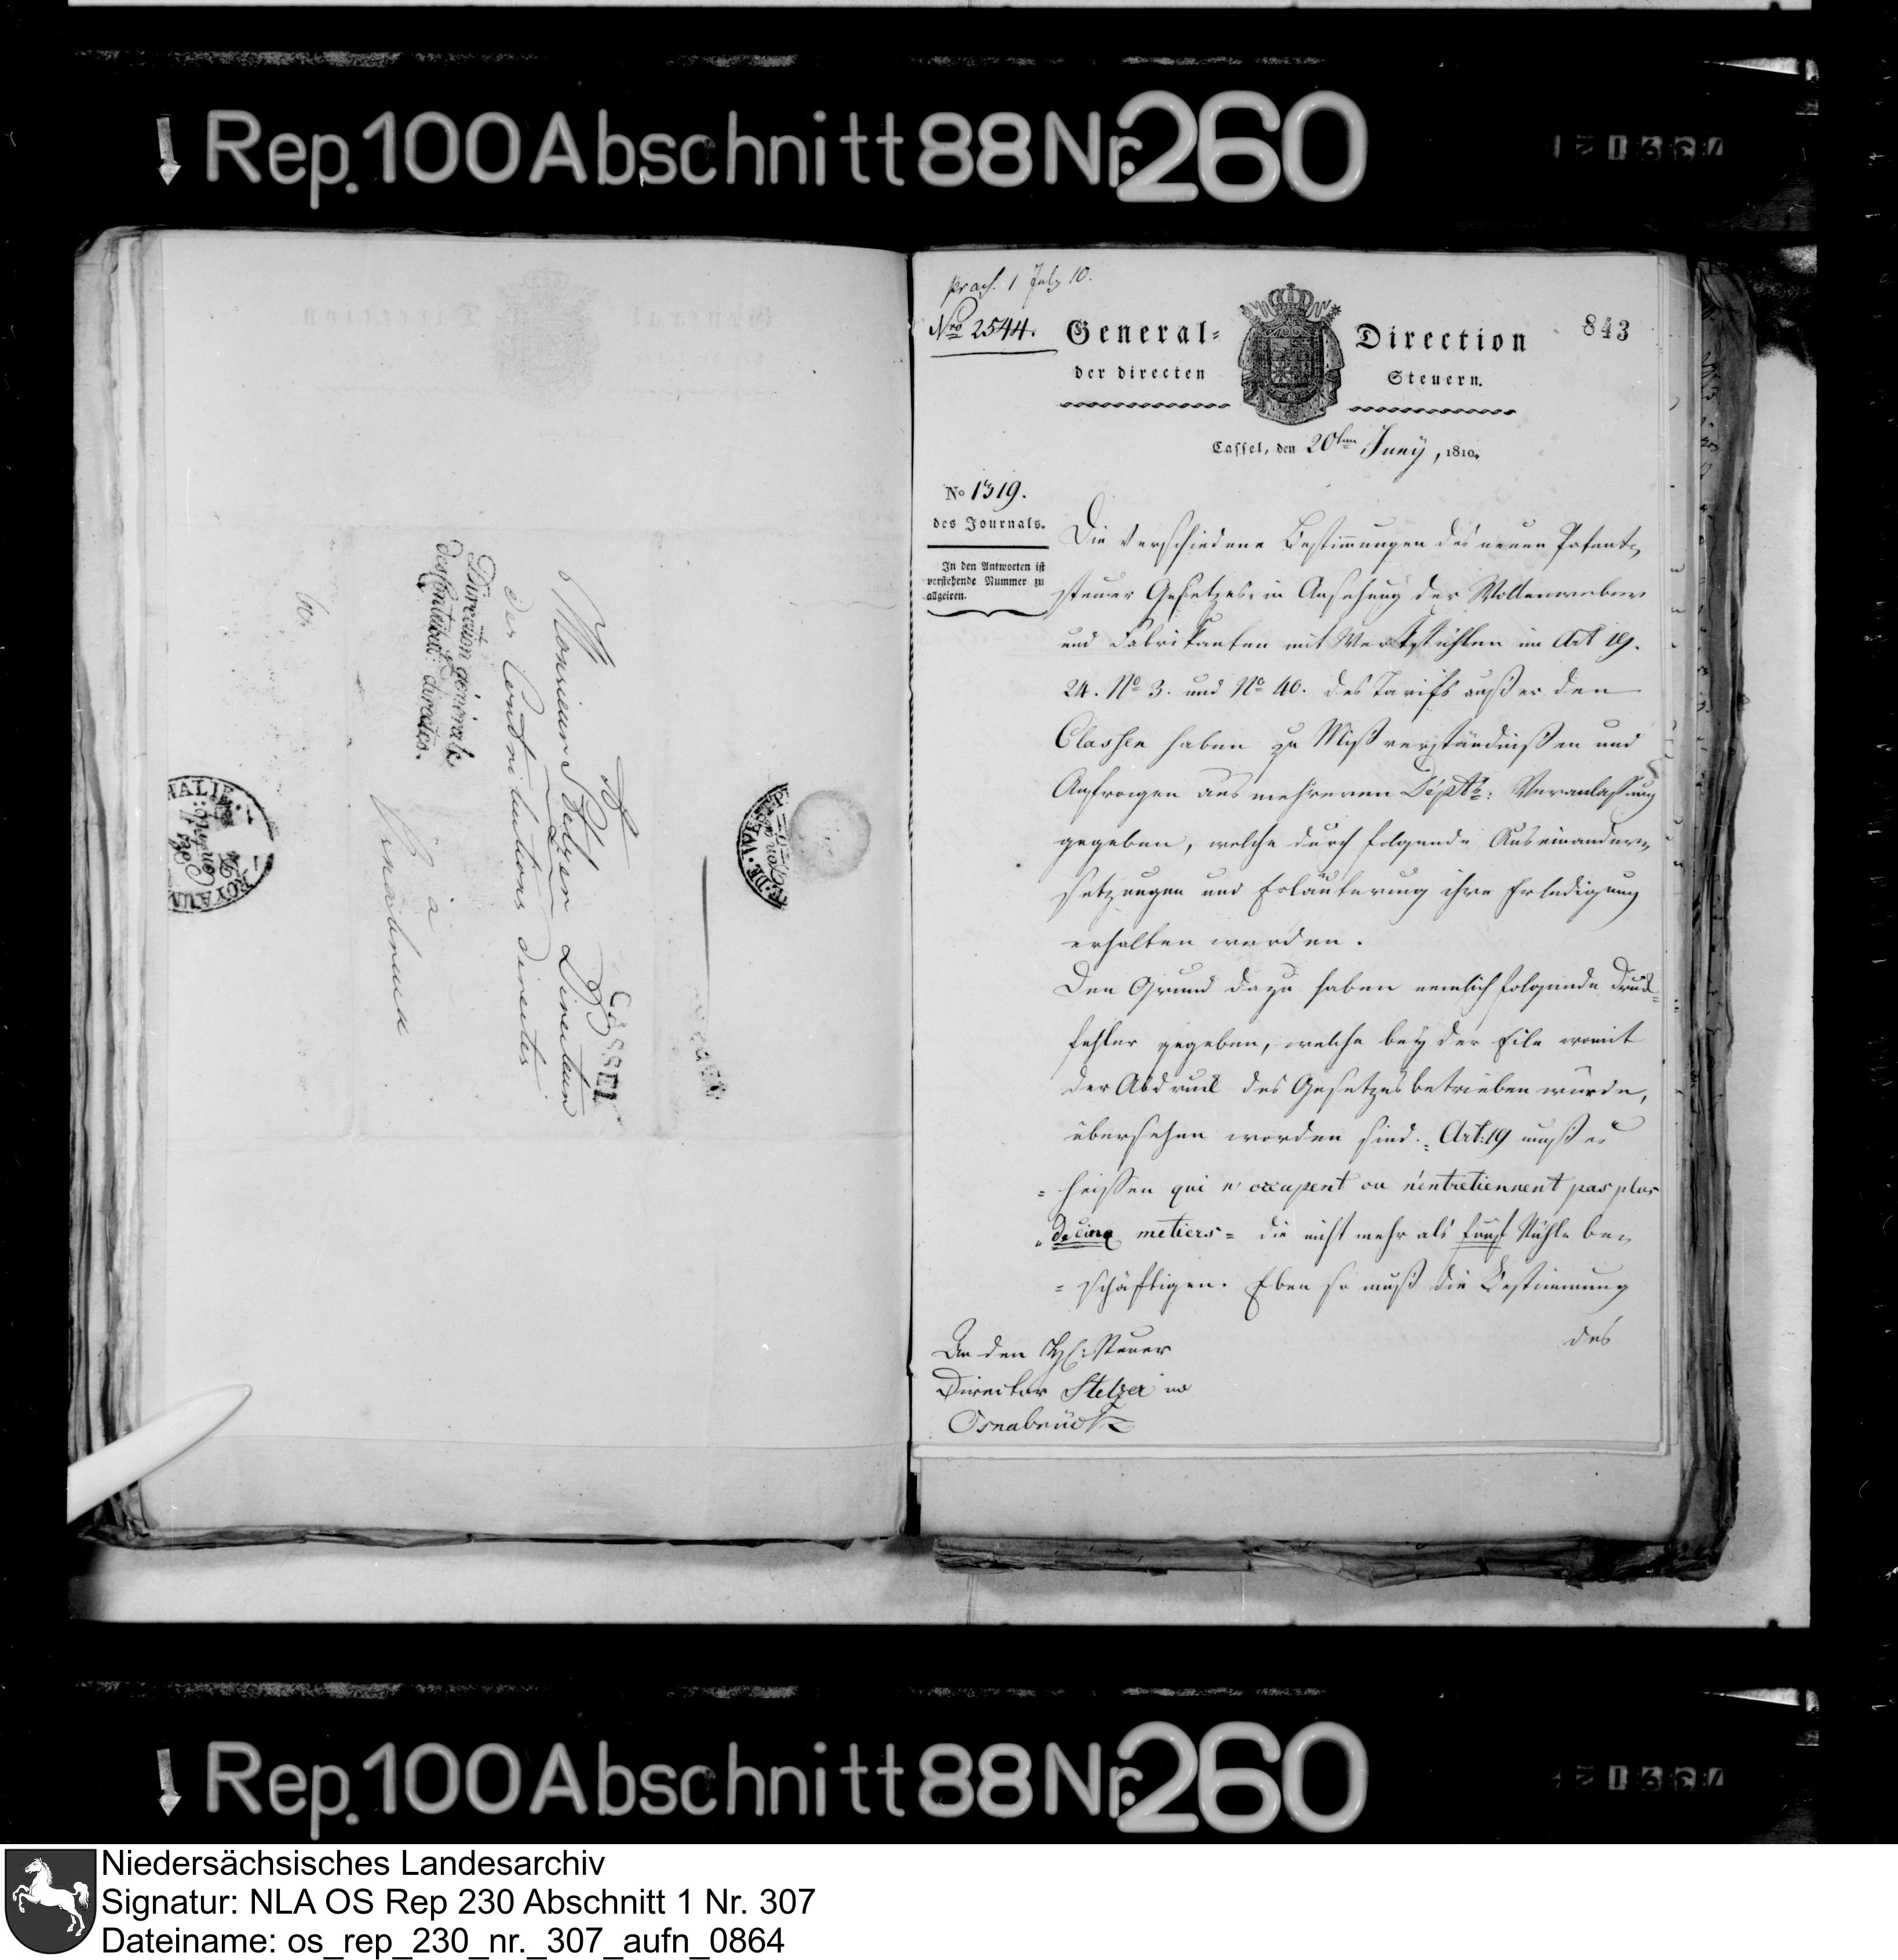 Rep. 100 Abschnitt 88 Nr. 260
A
Monsieur Stelzer Directeur
des Contributions directes
à
Osnabruck
Direction générale
des Contribut: directes.
CASSEL
praes. 1 July 10.
Nro 2544.
General= Direction
der directen Steuern.
843
Cassel, den 20ten Juny, 1810.
No 1319.
des Journals.
In den Antworten ist
vorstehende Nummer zu
allgeiren.
Die verschiedene Bestimmungen des neuen Patent=
steuer Gesetzes, in Ansehung der Wollenweber
und Fabrikanten mit Werkstühlen im Art 19.
24. No 3. und No 40. des Tarifs außer den
Classen haben zu Mißverständnißen und
Anfragen aus mehreren Depts: Veranlaßung
gegeben, welche durch folgende Auseinander=
setzungen und Erläuterung ihre Erledigung
erhalten werden.
Den Grund dazu haben nemlich folgende Druck=
fehler gegeben, welche bey der Eile womit
der Abdruck des Gesetzes betrieben wurde,
übersehen worden sind. Art: 19 muß es
= heissen qui n'occupent ou n'entretiennent pas plus
" de cinq metiers = die nicht mehr als fünf Stühle be=
= schäftigen. Eben so muß die Bestimmung
des
An den H: Steuer
Director Stelzer in
Osnabrück
Rep. 100 Abschnitt 88 Nr. 260
Niedersächsisches Landesarchiv
Signatur: NLA OS Rep 230 Abschnitt 1 Nr. 307
Dateiname: os_rep_230_nr._307_aufn_0864